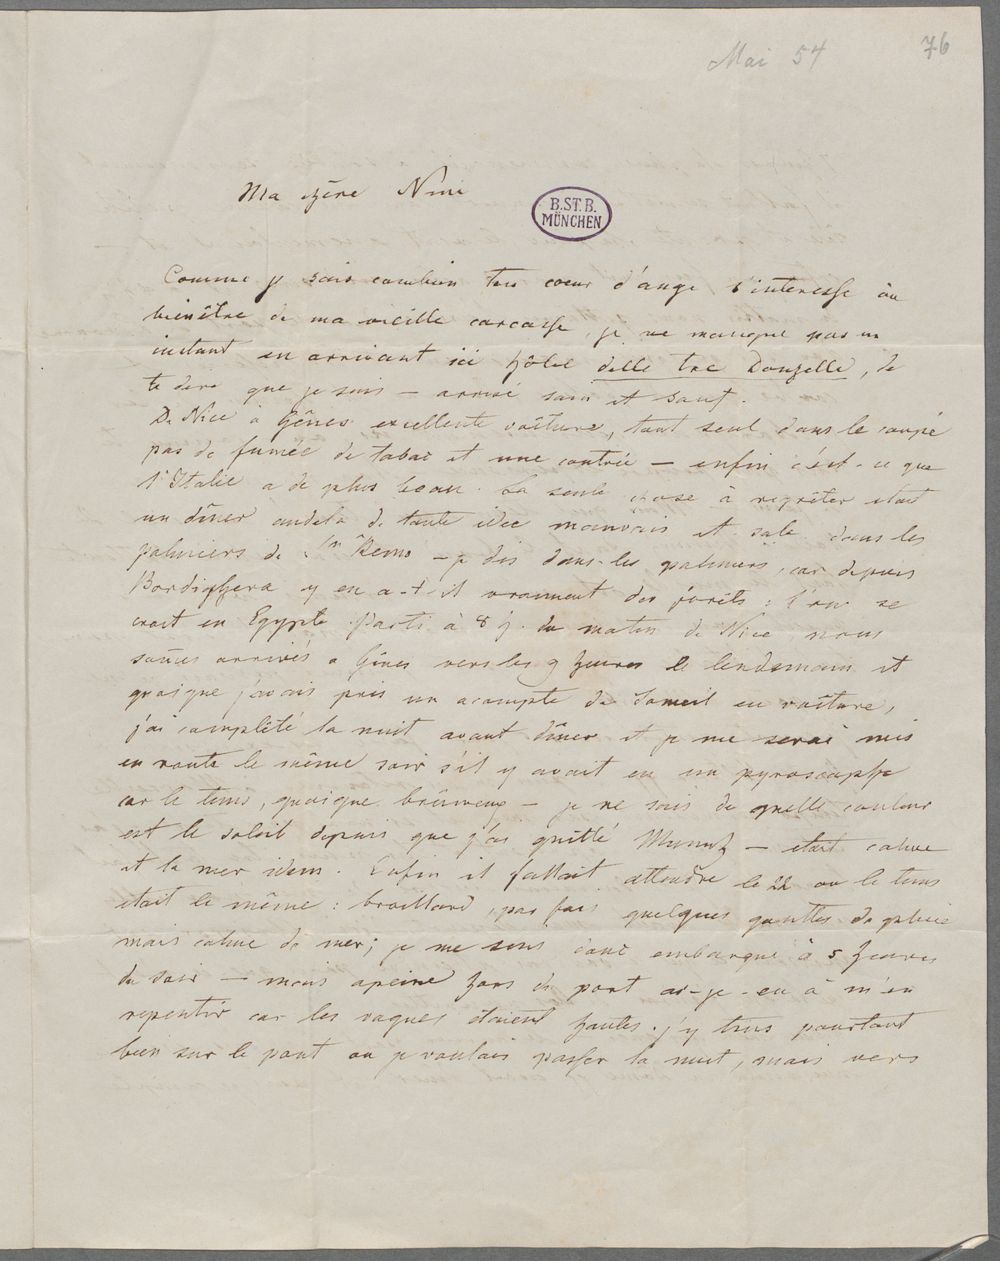 Mai 54
76
Ma chère Nini
B.ST.B.
MÜNCHEN
Comme je sais combien ton coeur d'ange s'interesse au
bienêtre de ma vieille carcasse, je ne manque pas un
instant en arrivant ici hôtel delle tre Donzelle, de
te dire que je suis – arrivé sain et sauf.
De Nice à Gênes excellente voiture, tout seul dans le coupé
pas de fumée de tabac et une contrée – enfin c'est-ce que
l'Italie a de plus beau. La seule chose à regrêter etait
un dîner audela de toute idée mauvais et sale dans les
palmiers de Sn Remo – je dis dans les palmiers, car depuis
Bordighera y en a-t-il vraiment des forêts: l'on se
croit en Egypte. Parti à 8 h. du matin de Nice nous
somes arrivés a Gênes vers les 9 heures le lendemain et
quoique j'avais pris un acompte de someil en voiture,
j'ai complêté la nuit avant dîner et je me serai mis
en route le même soir s'il y avait eu un pyroscaphe
car le tems, quoique brumeux – je ne sais de quelle couleur
est le soleil depuis que j'ai quitté – etait calme
et la mer idem. Enfin il fallait attendre le 22 ou le tems
etait le même: brouillard, par fois quelques gouttes de pluie
mais calme de mer; je me suis donc embarqué à 5 heures
du soir – mais apeine hors du port ai-je-eu à m'en
repentir car les vagues etaient hautes. j'y tins pourtant
bien sur le pont ou je voulais passer la nuit, mais vers